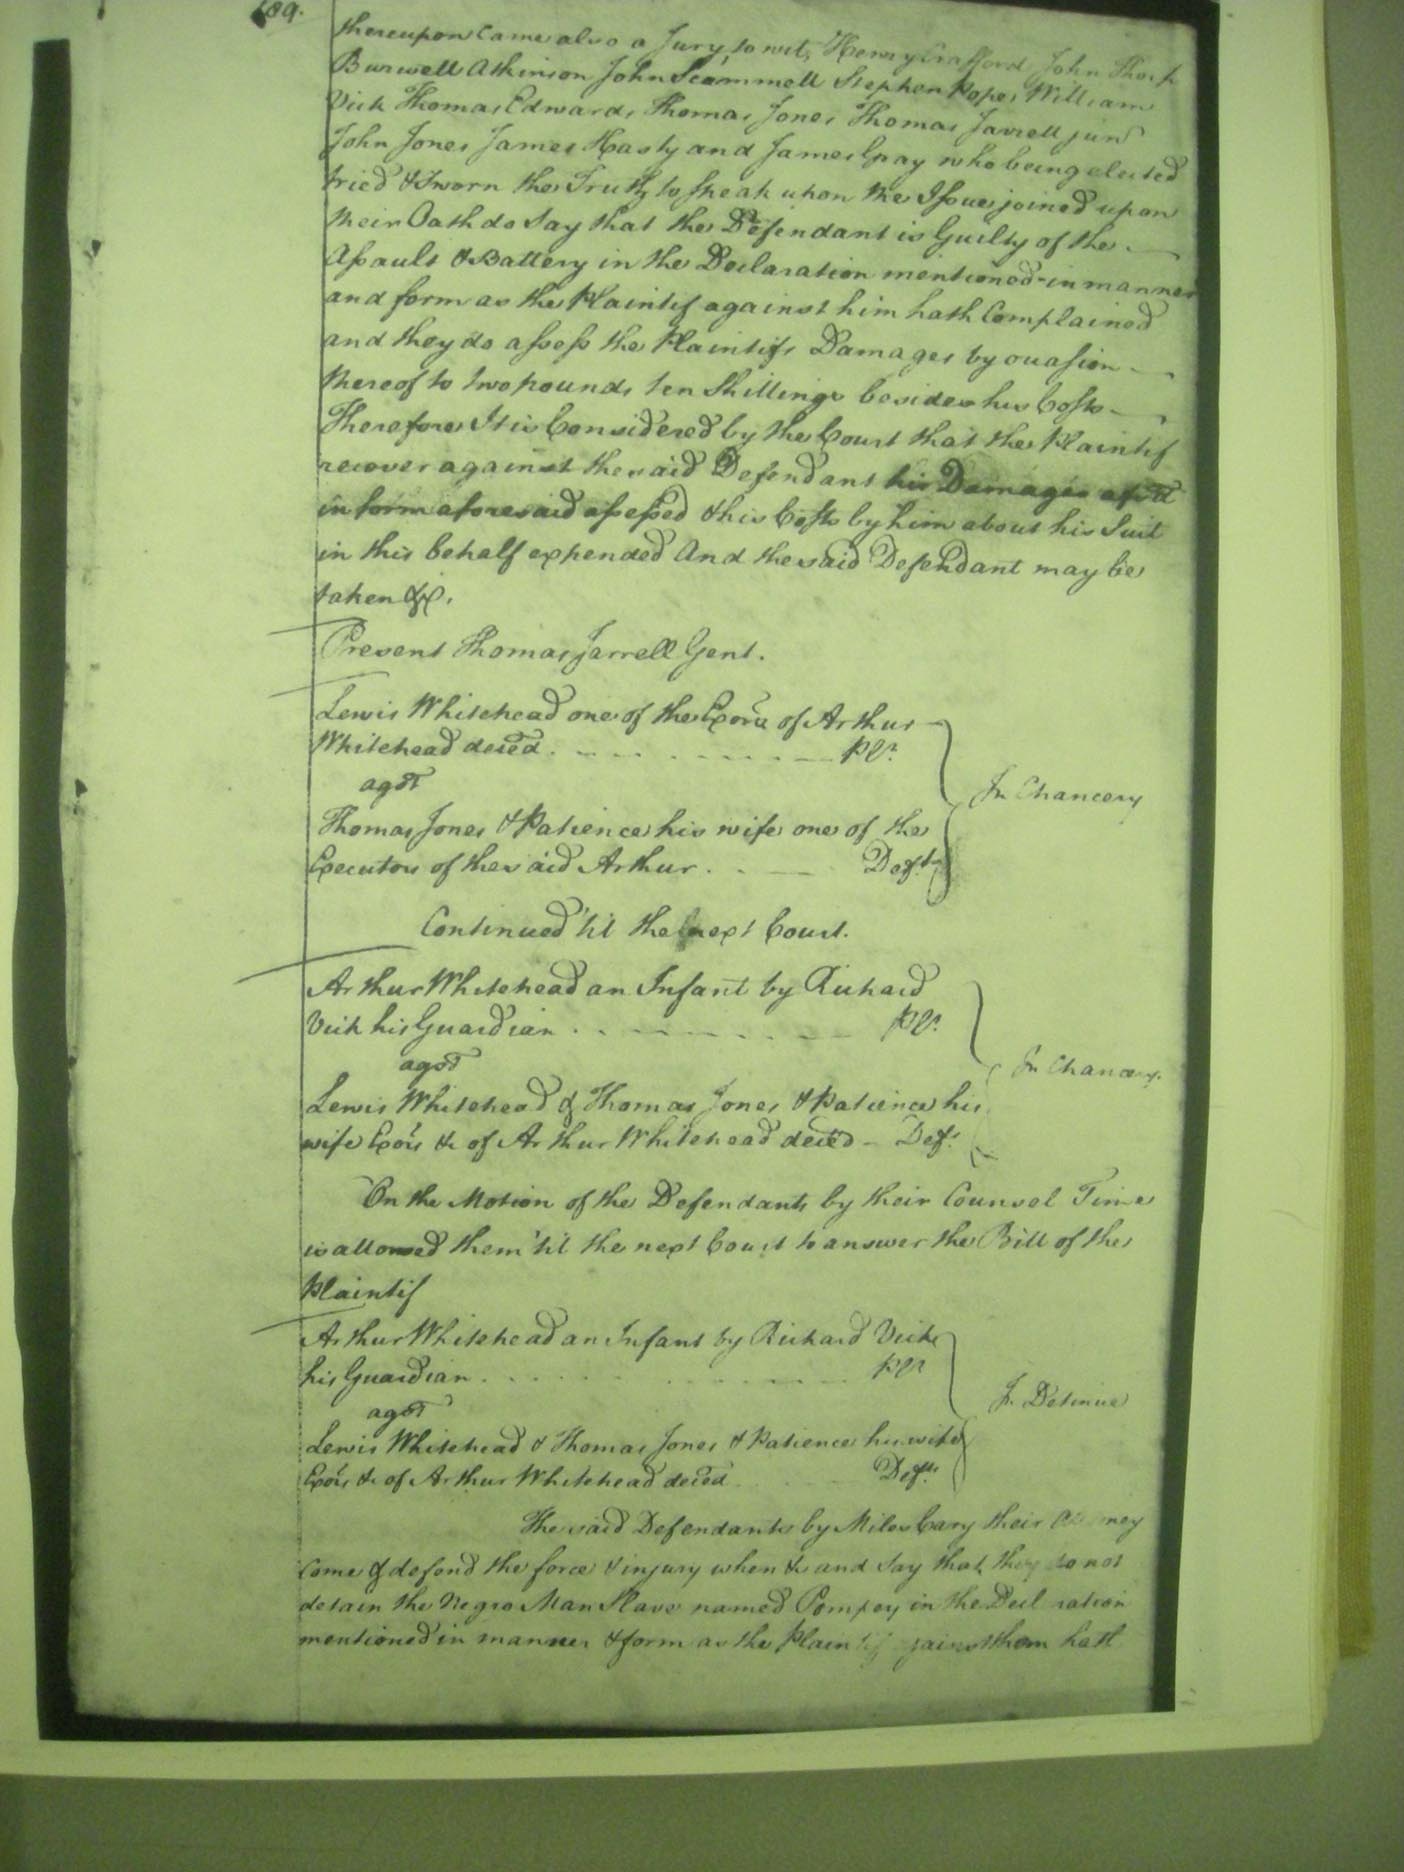 189.
thereupon came also a Jury, to wit, Henry Crafford John Thorp
Burwell Atkinson John Scammell Stephen Pope William
Vick Thomas Edwards Thomas Jones Thomas Jarrell junr
John Jones James Hasty and James Gray who being elected
tried & sworn the Truth to speak upon the Issue joined upon
their Oath do say that the Defendant is Guilty of the
Assault & Battery in the Declaration mentioned in manner
and form as the Plaintif against him hath Complained
and they do assess the Plaintifs Damages by occasion
thereof to two pounds ten Shillings besides his Costs
Therefore It is Considered by the Court that the Plaintif
recover against the said Defendant his Damages afsd
in form aforesaid assessed & his Costs by him about his Suit
in this behalf expended And the said Defendant may be
taken &c.
Present Thomas Jarrell Gent.
Lewis Whitehead one of the Exors of Arthur
Whitehead deced. Plt.
agst
In Chancery
Thomas Jones & Patience his wife one of the
Executors of the said Arthur. Defts
Continued 'til the next Court.
Arthur Whitehead an Infant by Richard
Vick his Guardian. Plt.
agst
In Chancery.
Lewis Whitehead & Thomas Jones & Patience his
wife Exors &c of Arthur Whitehead deced - Defts
On the Motion of the Defendants by their Counsel Time
is allowed them 'til the next Court to answer the Bill of the
Plaintif
Arthur Whitehead an Infant by Richard Vick
his Guardian. Plt
agst
In Detinue
Lewis Whitehead & Thomas Jones & Patience his wife
Exors &c of Arthur Whitehead deced Defts.
The said Defendants by Miles Cary their
come & defend the force & injury when &c and say that they do not
detain the Negro Man Slave named Pompey in the
mentioned in manner & form as the them hath